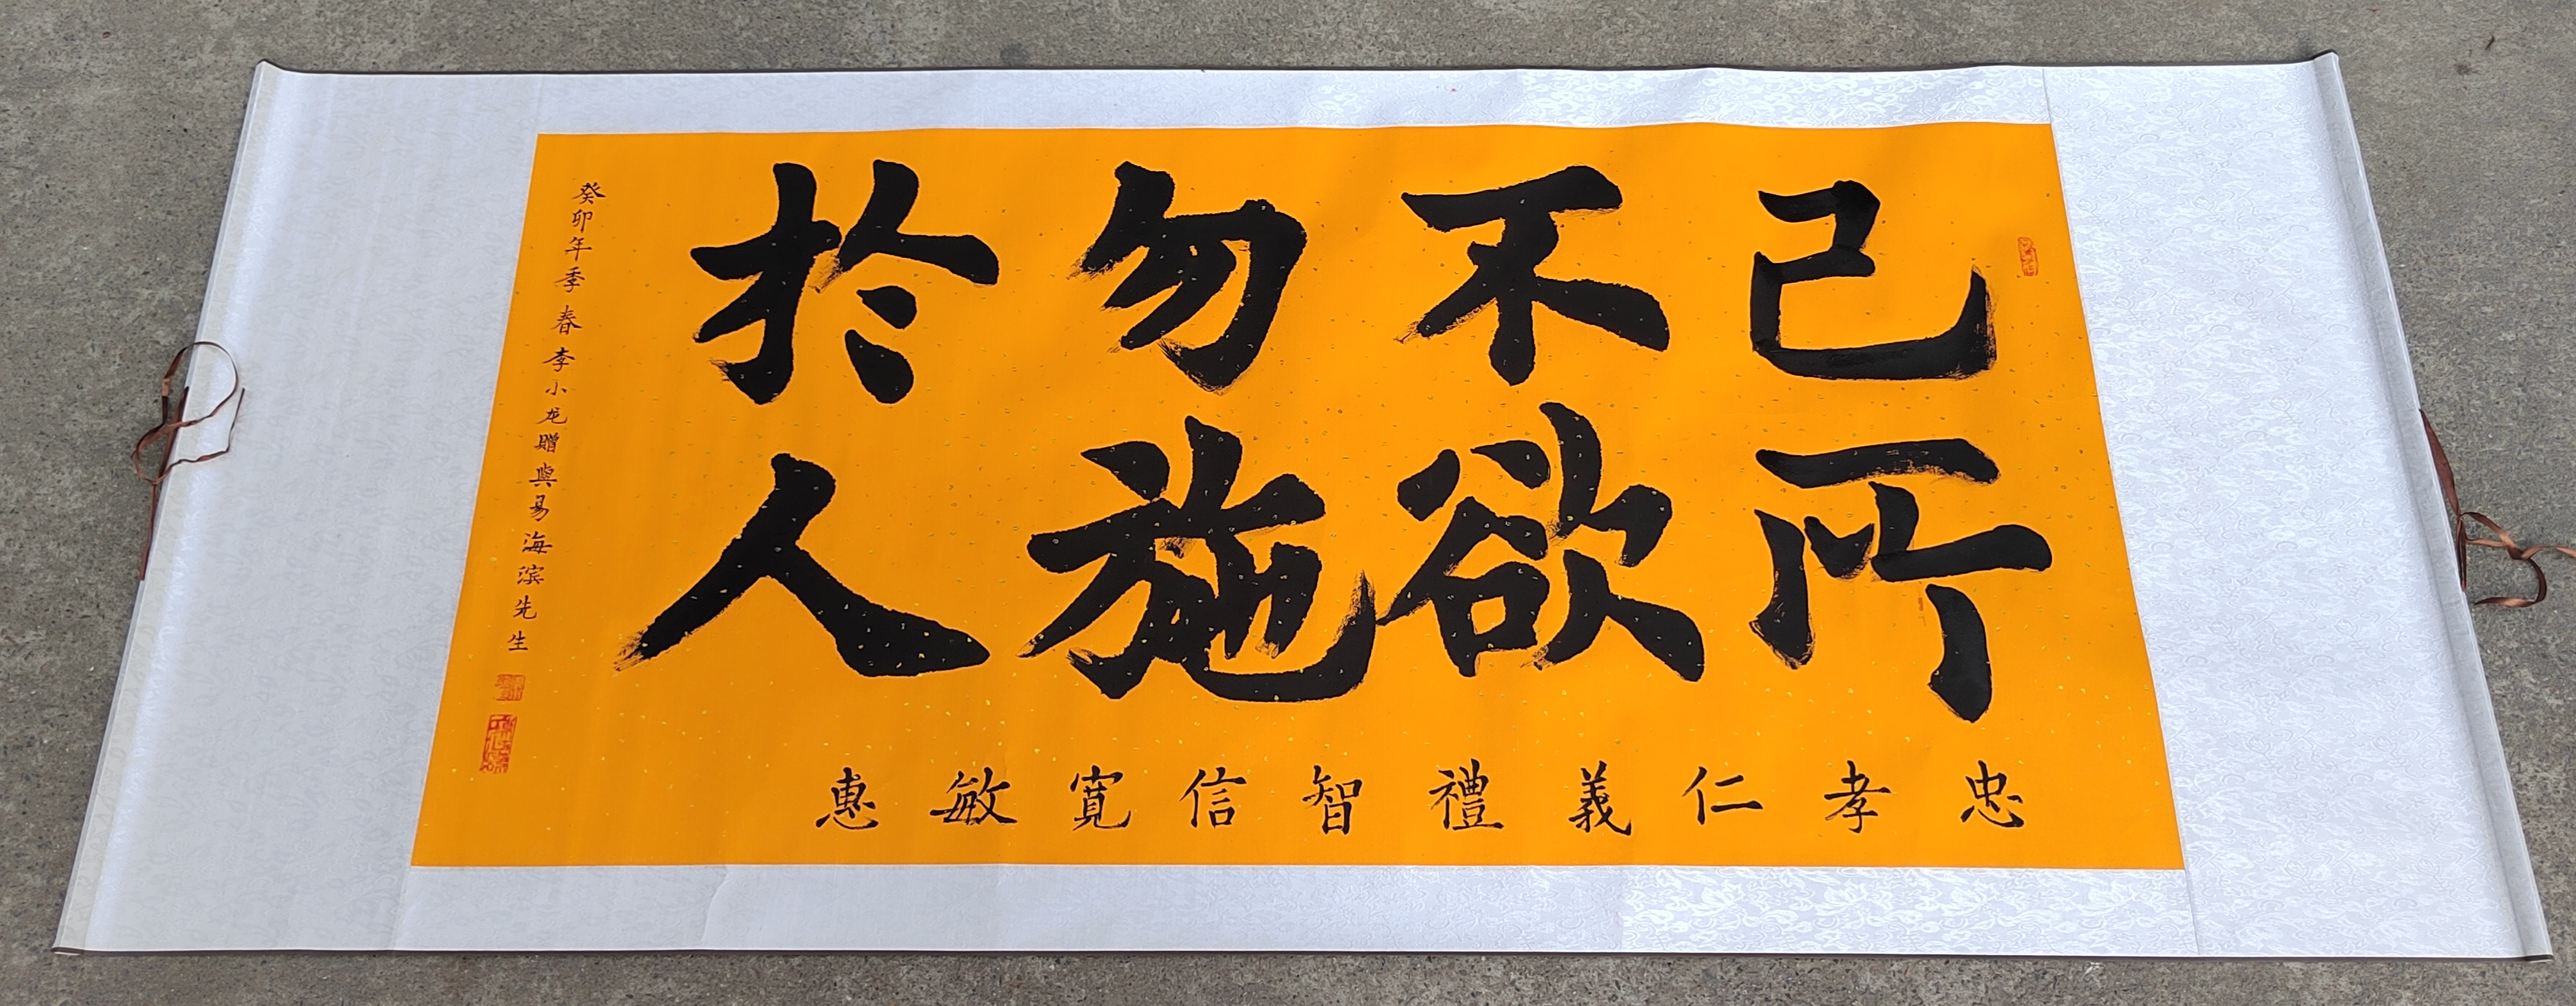 己所
不欲
勿施
於人
忠孝仁義禮智信寬敏惠
癸卯年季春李小龙贈與易海滨先生